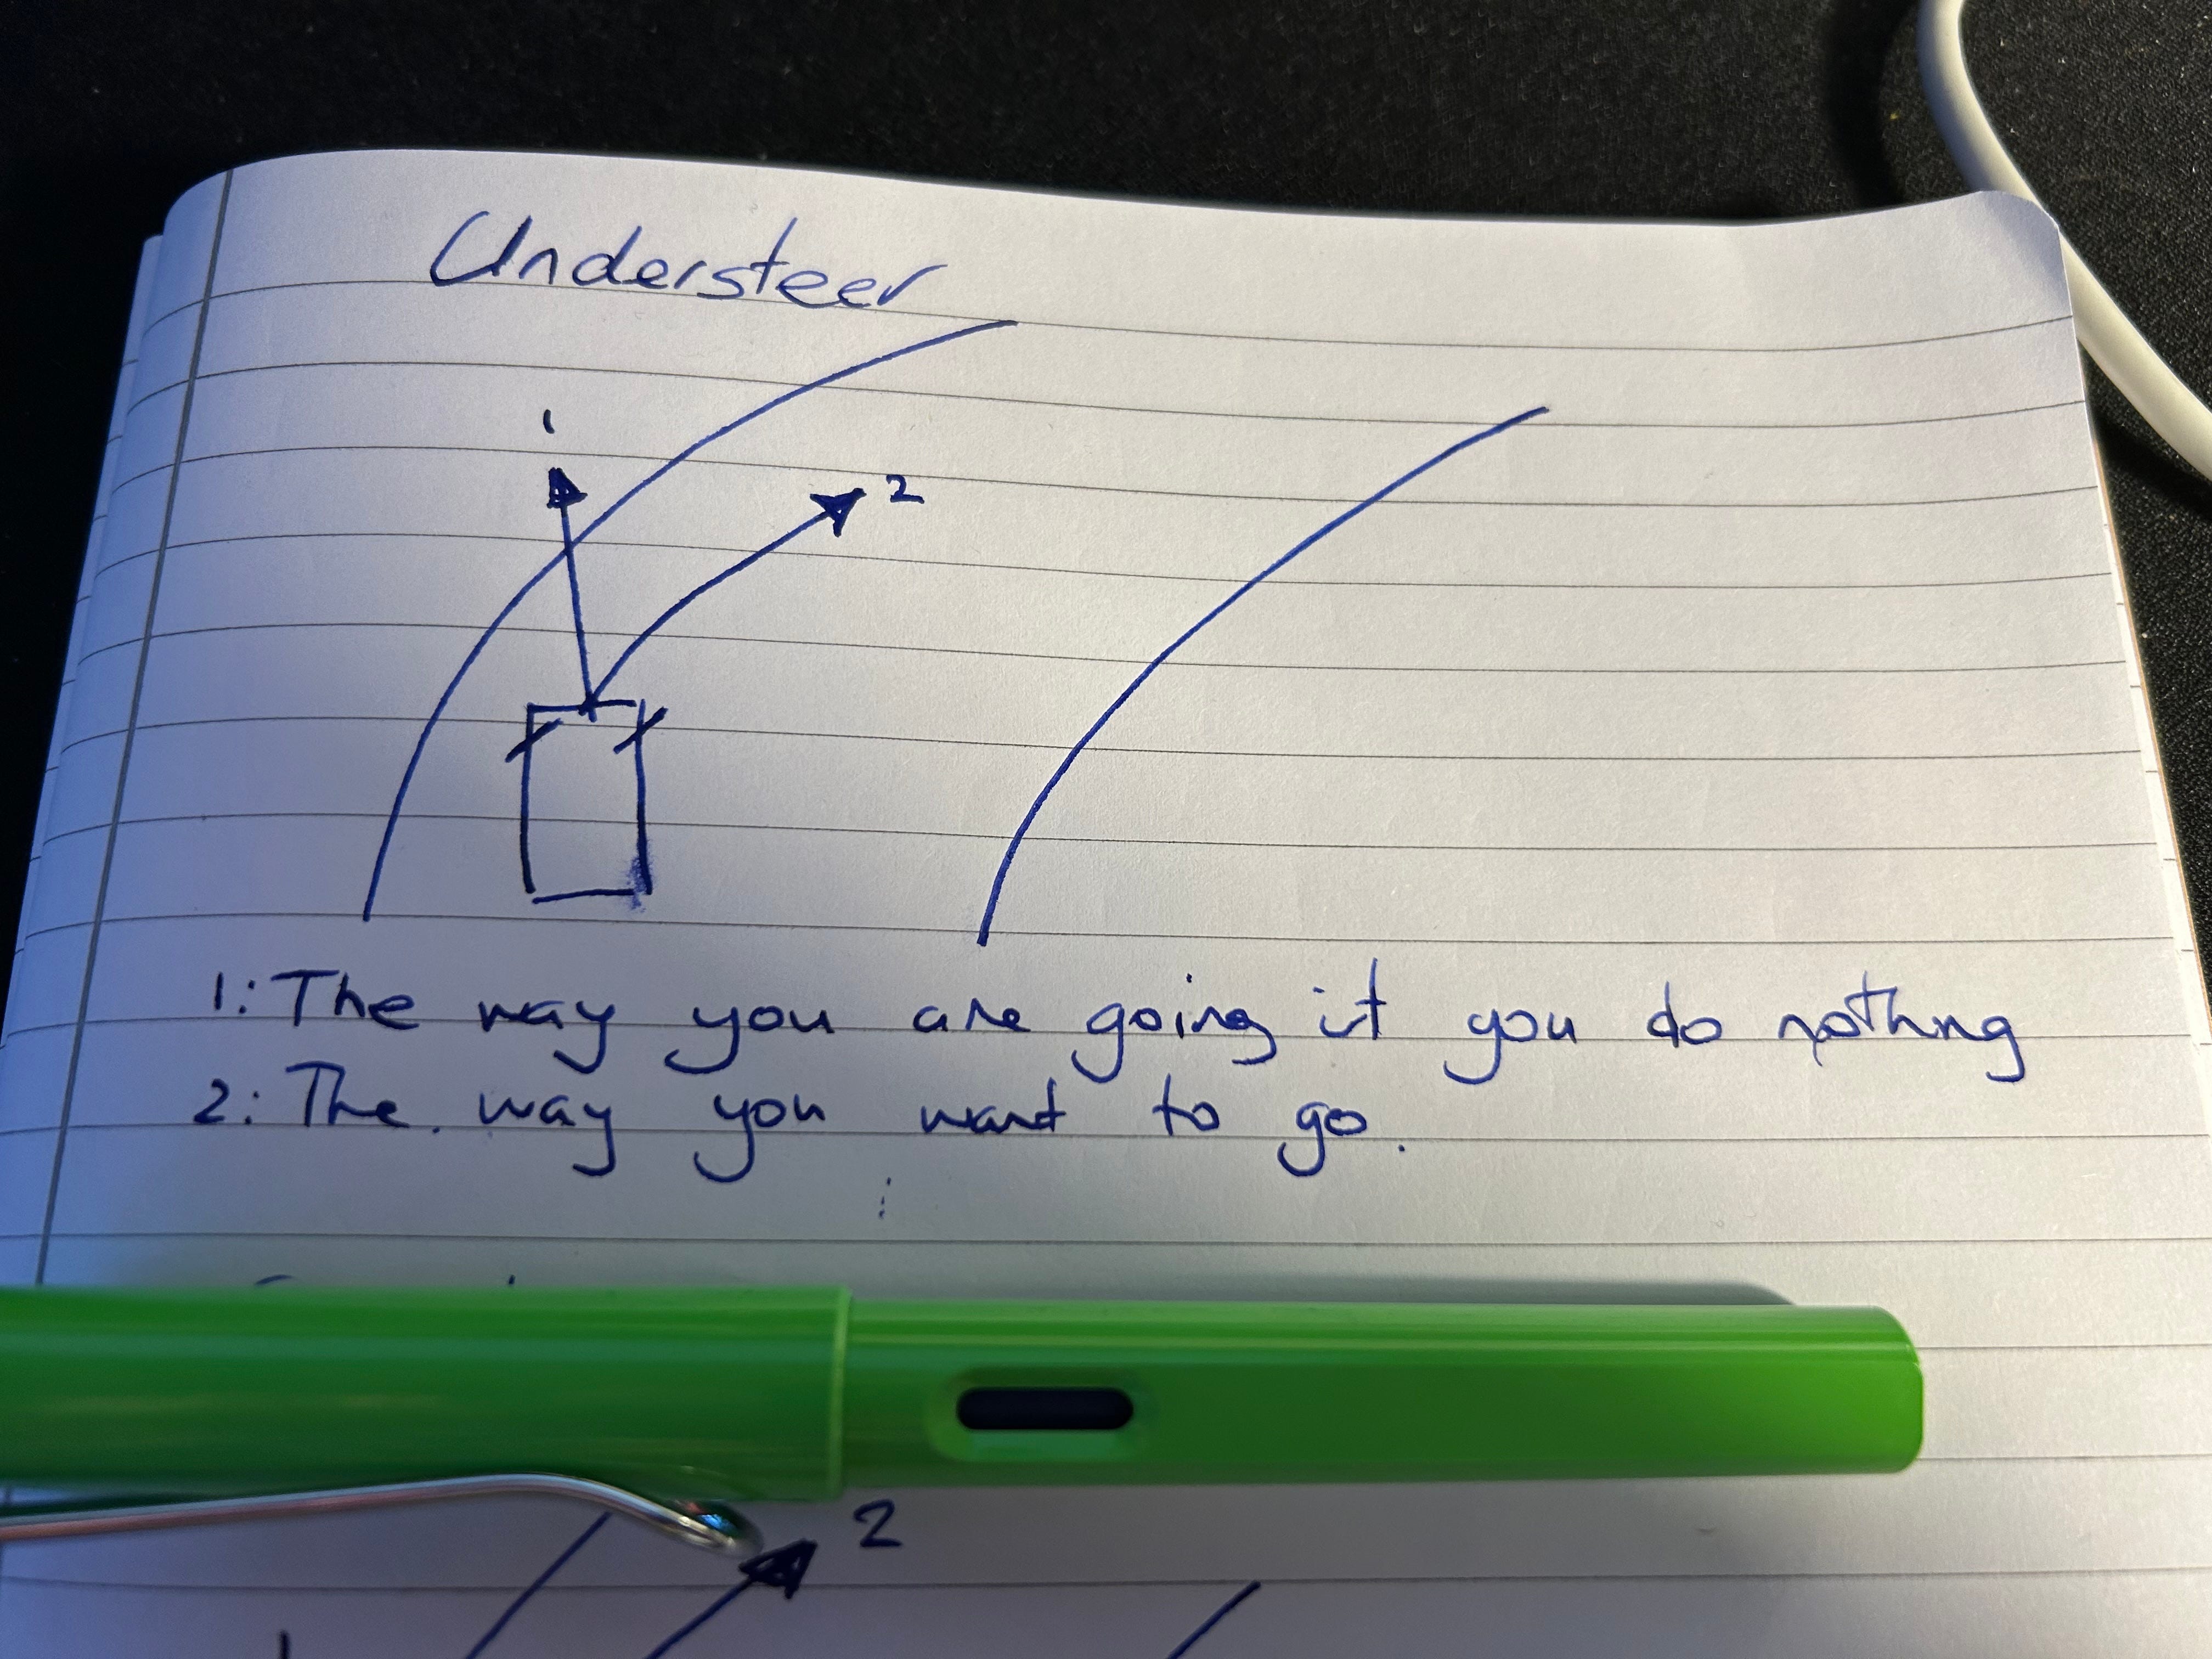 Understeer
1
2
1: The way you are going if you do nothng
2: The. way you want to go.
2